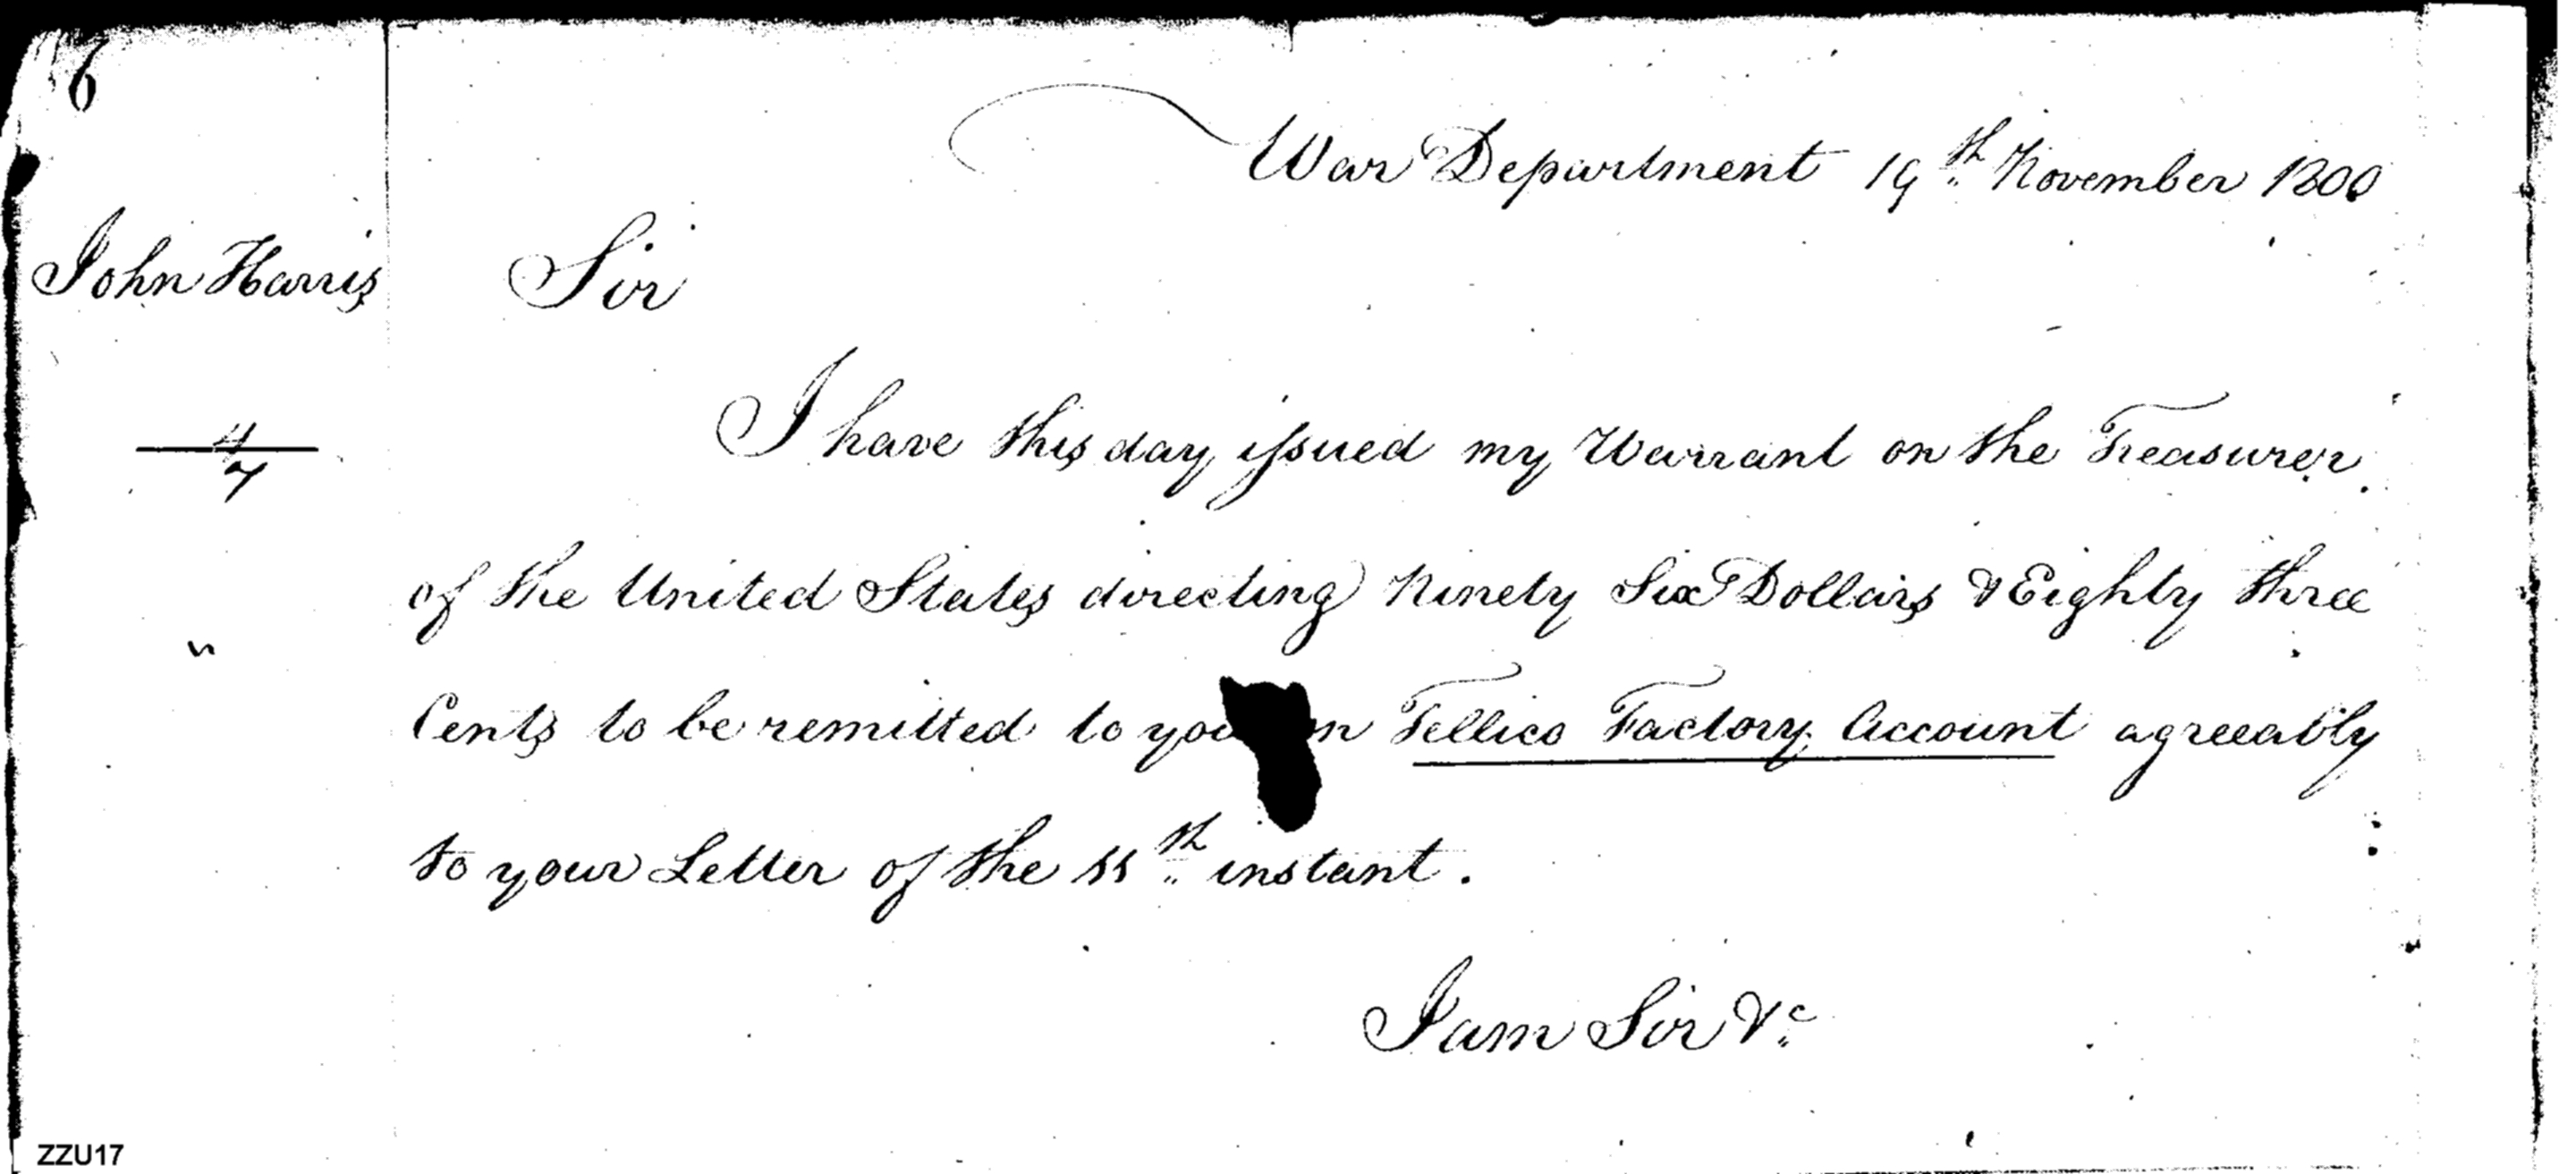 6
War Department 19th November 1800
John Harris
Sir
4
7
I have this day issued my Warrant on the Treasurer
of the United States directing Ninety Six Dollars & Eighty three
Cents to be remitted to you on Tellico Factory Account agreeably
to your Letter of the 11th instant.
I am Sir &c
ZZU17